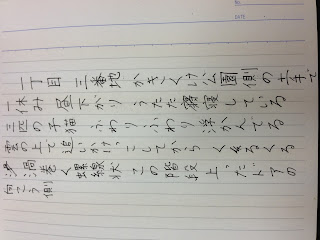 一丁目 三番地 かきくけ公園側の土手で
一休み 昼下がり うたた寝している
三匹の子猫 ふわりふわり 浮かんでる
雲の上で追いかけっこしてから くるくる
渦巻く螺線状 この階段上ったドアの
向こう側